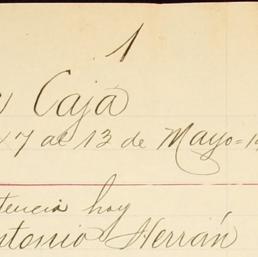 1
Caja
7 al 13 de Mayo=1
tencia hoy
ntonio Herrán